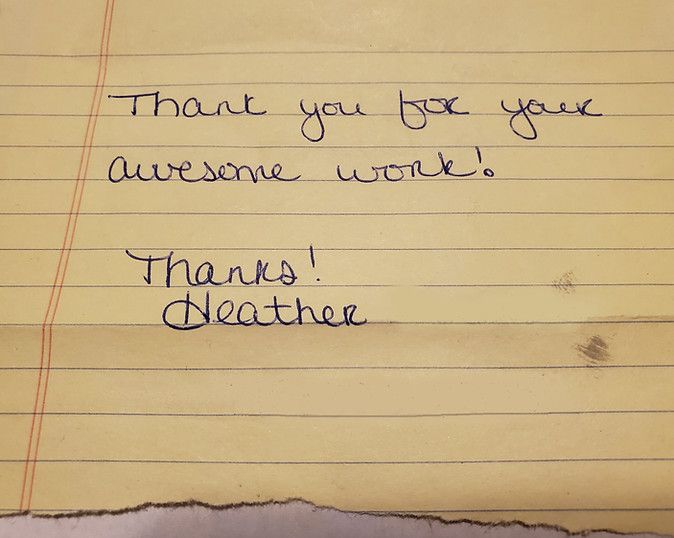 Thank you for your
awesome work!
Thanks!
Heather